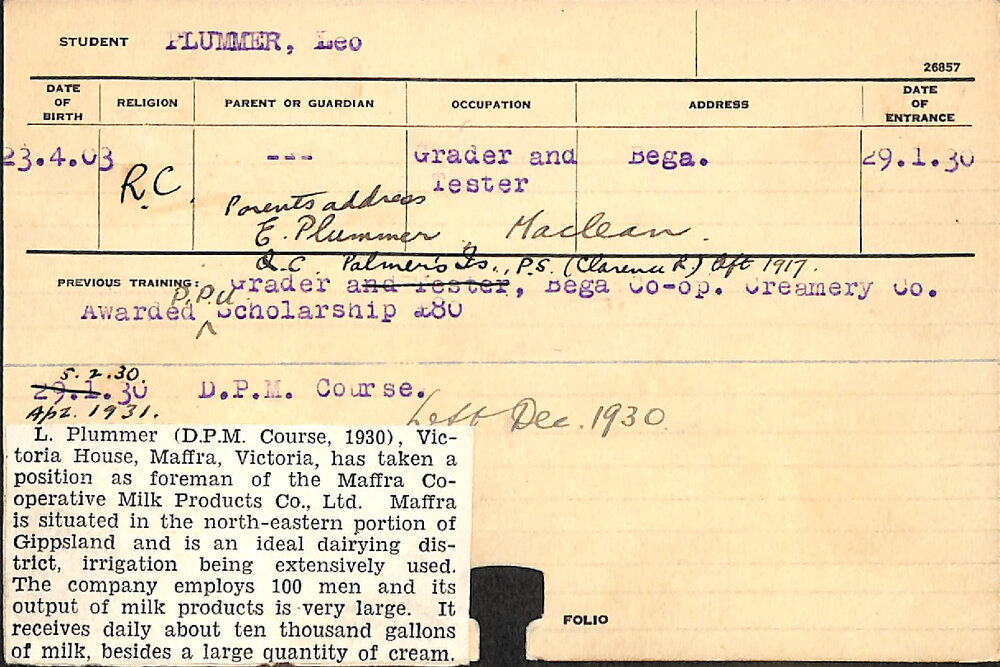 STUDENT PLUMMER, Leo
26857
DATE OF BIRTH RELIGION PARENT OR GUARDIAN OCCUPATION ADDRESS DATE OF ENTRANCE
23.4.03 R.C. --- Grader and Tester Bega. 29.1.30
Parents address
E. Plummer, Maclean.
Q.C. Palmer's Is., P.S. (Clarence R.) Qft 1917.
PREVIOUS TRAINING: Grader and Tester, Bega Co-op. Creamery Co.
Awarded P.P.U. Scholarship £80
5.2.30.
29.1.30 D.P.M. Course.
Left Dec. 1930.
Apr. 1931.
L. Plummer (D.P.M. Course, 1930), Vic-
toria House, Maffra, Victoria, has taken a
position as foreman of the Maffra Co-
operative Milk Products Co., Ltd. Maffra
is situated in the north-eastern portion of
Gippsland and is an ideal dairying dis-
trict, irrigation being extensively used.
The company employs 100 men and its
output of milk products is very large. It
receives daily about ten thousand gallons
of milk, besides a large quantity of cream.
FOLIO